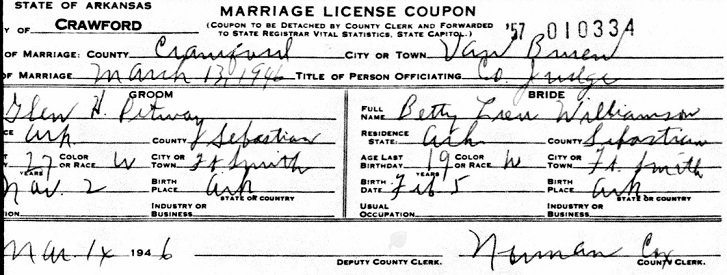 STATE OF ARKANSAS
MARRIAGE LICENSE COUPON
Y OF CRAWFORD
(COUPON TO BE DETACHED BY COUNTY CLERK AND FORWARDED
TO STATE REGISTRAR VITAL STATISTICS, STATE CAPITOL.)
'57 010334
OF MARRIAGE: COUNTY Crawford CITY OR TOWN Van Buren
OF MARRIAGE March 13, 1946 TITLE OF PERSON OFFICIATING Co. Judge
GROOM
Glen H. Pitway
CE Ark COUNTY Sebastian
T 27 YEARS COLOR OR RACE W CITY OR TOWN Ft Smith
Nov. 2 BIRTH PLACE Ark
STATE OR COUNTRY
ION INDUSTRY OR BUSINESS
BRIDE
FULL NAME Betty Williamson
RESIDENCE STATE: Ark COUNTY Sebastian
AGE LAST BIRTHDAY. 19 YEARS COLOR OR RACE W CITY OR TOWN. Ft. Smith
BIRTH DATE Feb 5 BIRTH PLACE Ark
STATE OR COUNTRY
USUAL OCCUPATION. INDUSTRY OR BUSINESS
Mar. 1946 DEPUTY COUNTY CLERK. Norman Cox COUNTY CLERK.